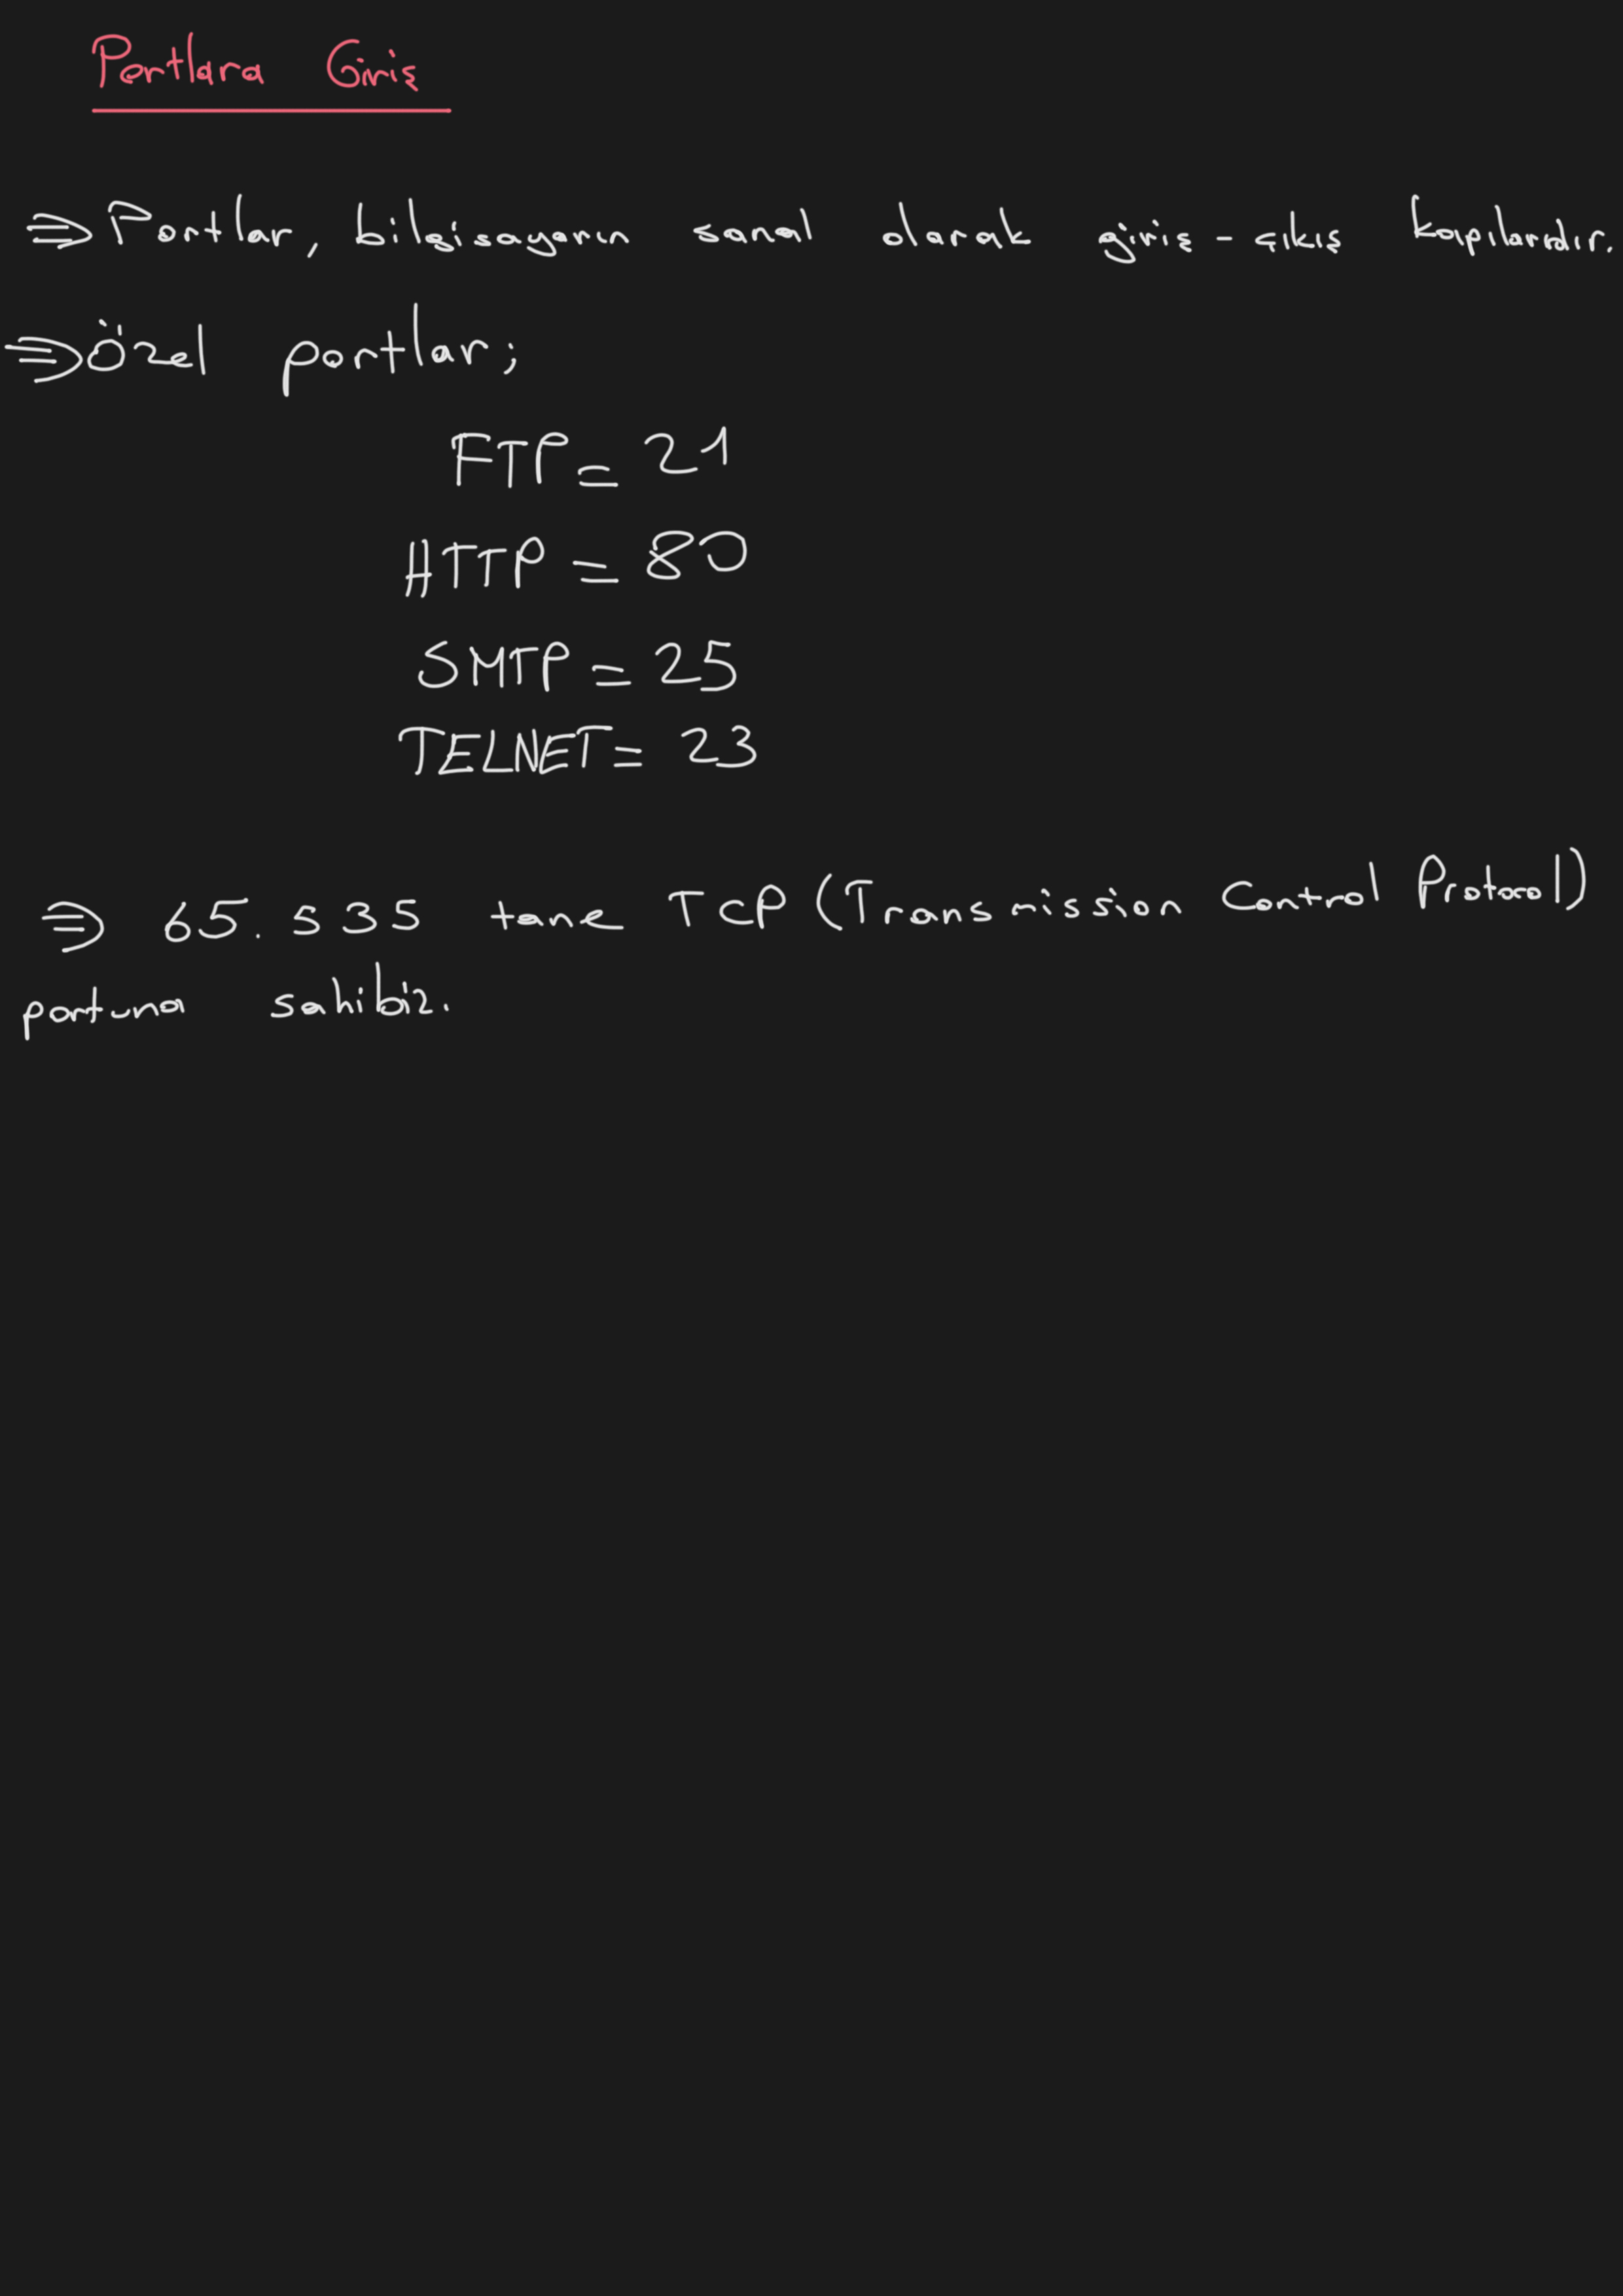 Portlara Giriş
⇒ Portlar, bilgisayarın sanal olarak giriş-çıkış kapılarıdır.
⇒ Özel portlar;
FTP = 21
HTTP = 80
SMTP = 25
TELNET = 23
⇒ 65.535 tane TCP (Transmission Control Protocol)
portuna sahibiz.